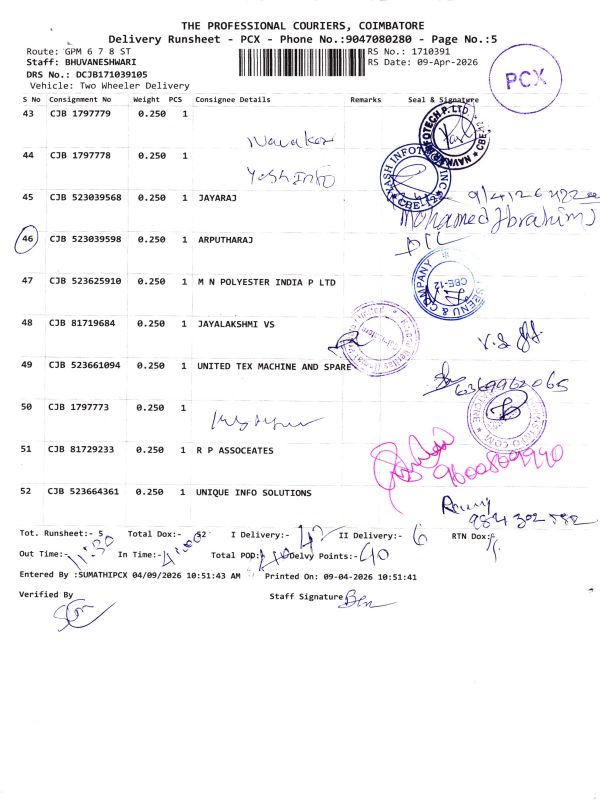 THE PROFESSIONAL COURIERS, COIMBATORE
Delivery Runsheet - PCX - Phone No.:9047080280 - Page No.:5
Route: GPM 6 7 8 ST
RS No.: 1710391
Staff: BHUVANESHWARI
RS Date: 09-Apr-2026
DRS No.: DCJB171039105
Vehicle: Two Wheeler Delivery
PCX
S No Consignment No Weight PCS Consignee Details Remarks Seal & Signature
43 CJB 1797779 0.250 1
44 CJB 1797778 0.250 1
Yesh Info
45 CJB 523039568 0.250 1 JAYARAJ
Mohamed Ibrahim J
46 CJB 523039598 0.250 1 ARPUTHARAJ
47 CJB 523625910 0.250 1 M N POLYESTER INDIA P LTD
SREENU & COMPANY
CBE-12
48 CJB 81719684 0.250 1 JAYALAKSHMI VS
49 CJB 523661094 0.250 1 UNITED TEX MACHINE AND SPARE
6369962065
50 CJB 1797773 0.250 1
51 CJB 81729233 0.250 1 R P ASSOCEATES
52 CJB 523664361 0.250 1 UNIQUE INFO SOLUTIONS
Tot. Runsheet:- 5 Total Dox:- 52 I Delivery:- 42 II Delivery:- 6 RTN Dox:-
Out Time:- 11:30 In Time:- Total POD: Delvy Points:- 40
Entered By :SUMATHIPCX 04/09/2026 10:51:43 AM Printed On: 09-04-2026 10:51:41
Verified By
Staff Signature